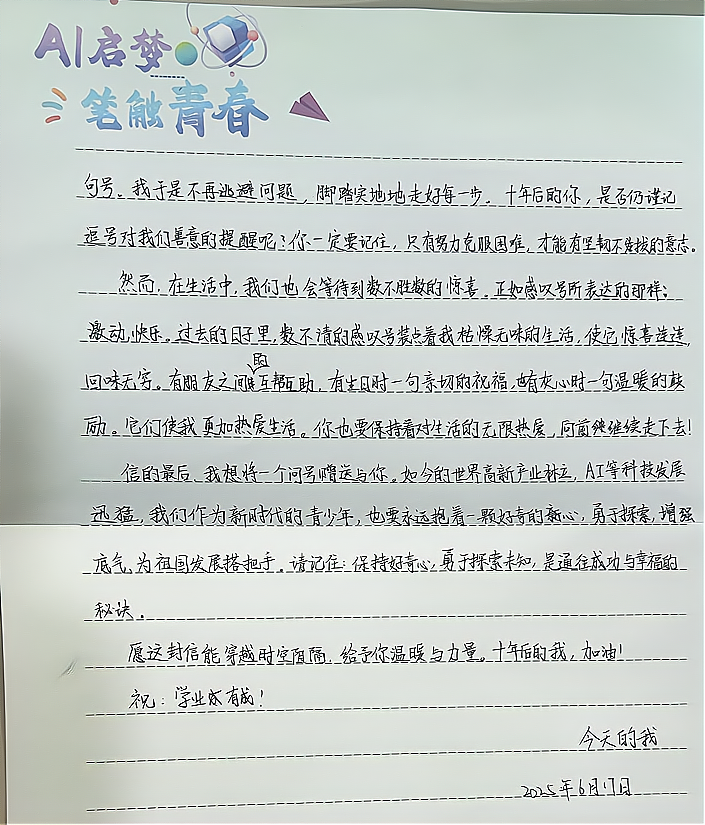 AI启梦
笔触青春
句号。我于是不再逃避问题，脚踏实地地走好每一步。十年后的你，是否仍谨记
逗号对我们善意的提醒呢？你一定要记住，只有努力克服困难，才能有坚韧不拔的意志。
然而，在生活中，我们也会等待到数不胜数的惊喜。正如感叹号所表达的那样：
激动，快乐。过去的日子里，数不清的感叹号装点着我枯燥无味的生活，使它惊喜连连，
回味无穷。有朋友之间的互帮互助，有生日时一句亲切的祝福，也有灰心时一句温暖的鼓
励。它们使我更加热爱生活。你也要保持着对生活的无限热爱，向前继续走下去！
信的最后，我想将一个问号赠送与你。如今的世界高新产业林立，AI等科技发展
迅猛，我们作为新时代的青少年，也要永远抱着一颗好奇的心，勇于探索，增强
底气，为祖国发展搭把手。请记住：保持好奇心，勇于探索未知，是通往成功与幸福的
秘诀。
愿这封信能穿越时空阻隔，给予你温暖与力量。十年后的我，加油！
祝：学业有成！
今天的我
2025年6月17日